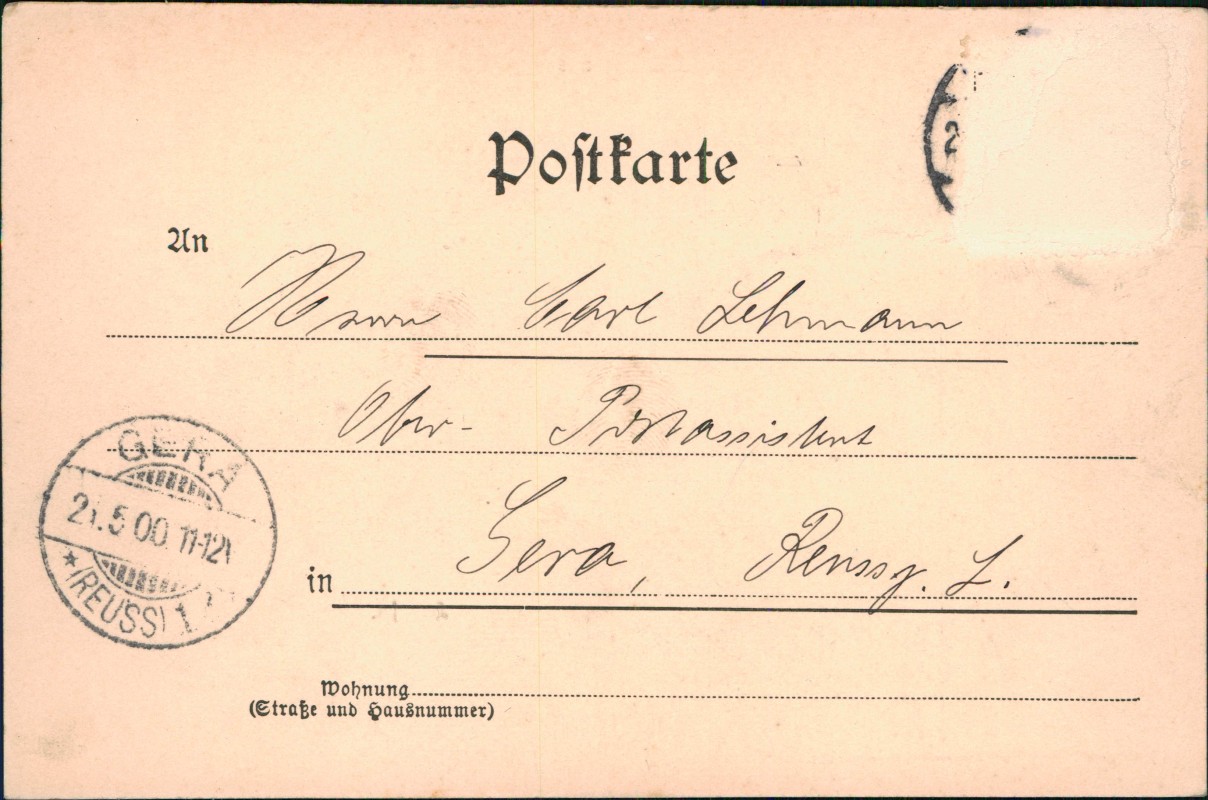 Postkarte
An
Herrn Carl Lehmann
Ober-Postassistent
in Gera, Reuss j. L.
Wohnung
(Straße und Hausnummer)
GERA
21.5.00. 11-12V
* (REUSS) 1
2